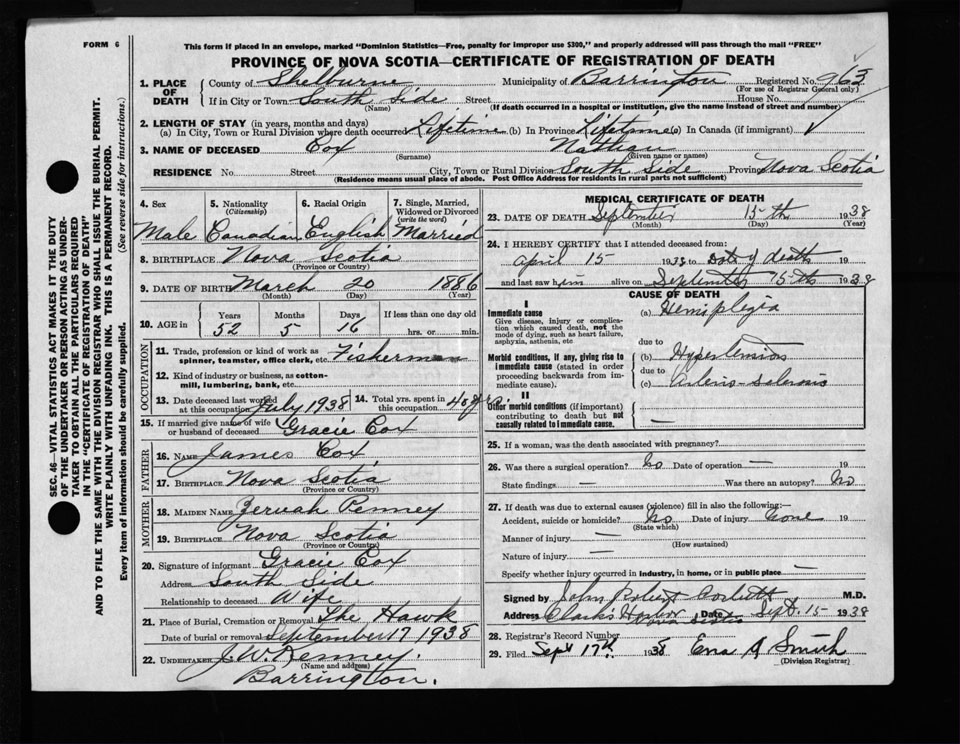 FORM 6
This form if placed in an envelope, marked "Dominion Statistics—Free, penalty for improper use $300," and properly addressed will pass through the mail "FREE"
PROVINCE OF NOVA SCOTIA—CERTIFICATE OF REGISTRATION OF DEATH
1. PLACE OF DEATH County of Shelburne Municipality of Barrington Registered No. 963
(For use of Registrar General only)
If in City or Town South Side Street House No.
(Name) (If death occurred in a hospital or institution, give the name instead of street and number)
2. LENGTH OF STAY (in years, months and days)
(a) In City, Town or Rural Division where death occurred Lifetime (b) In Province Lifetime (c) In Canada (if immigrant) ✓
3. NAME OF DECEASED Cox Nathan
(Surname) (Given name or names)
RESIDENCE No. Street City, Town or Rural Division South Side Province Nova Scotia
(Residence means usual place of abode. Post Office Address for residents in rural parts not sufficient)
4. Sex 5. Nationality (Citizenship) 6. Racial Origin 7. Single, Married, Widowed or Divorced (write the word)
Male Canadian English Married
8. BIRTHPLACE Nova Scotia
(Province or Country)
9. DATE OF BIRTH March 20 1886
(Month) (Day) (Year)
10. AGE in Years Months Days If less than one day old
52 5 16 hrs. or min.
OCCUPATION
11. Trade, profession or kind of work as spinner, teamster, office clerk, etc. Fisherman
12. Kind of industry or business, as cotton-mill, lumbering, bank, etc.
13. Date deceased last worked at this occupation July 1938 14. Total yrs. spent in this occupation 40 yrs.
15. If married give name of wife or husband of deceased Gracie Cox
FATHER
16. NAME James Cox
17. BIRTHPLACE Nova Scotia
(Province or Country)
MOTHER
18. MAIDEN NAME Zeruah Penney
19. BIRTHPLACE Nova Scotia
(Province or Country)
20. Signature of informant Gracie Cox
Address South Side
Relationship to deceased Wife
21. Place of Burial, Cremation or Removal The Hawk
Date of burial or removal September 17 1938
22. UNDERTAKER J. W. Kenney.
(Name and address)
Barrington.
MEDICAL CERTIFICATE OF DEATH
23. DATE OF DEATH September 15th 1938
(Month) (Day) (Year)
24. I HEREBY CERTIFY that I attended deceased from:
April 15 1938 to Date of death
and last saw him alive on September 15th 1938
CAUSE OF DEATH
I
Immediate cause (a) Hemiplegia
Give disease, injury or complication which caused death, not the mode of dying, such as heart failure, asphyxia, asthenia, etc
due to
Morbid conditions, if any, giving rise to immediate cause (stated in order proceeding backwards from immediate cause).
(b) Hypertension
due to
(c) Arterio-sclerosis
II
Other morbid conditions (if important) contributing to death but not causally related to immediate cause. —
25. If a woman, was the death associated with pregnancy?
26. Was there a surgical operation? No Date of operation — 19
State findings — Was there an autopsy? No
27. If death was due to external causes (violence) fill in also the following:—
Accident, suicide or homicide? No Date of injury none 19
(State which)
Manner of injury —
(How sustained)
Nature of injury —
Specify whether injury occurred in industry, in home, or in public place —
Signed by John Robert Corbett M.D.
Address Clark's Harbor Nova Scotia Date Sept. 15 1938
28. Registrar's Record Number
29. Filed Sept 17th. 1938 Ena A Smith
(Division Registrar)
SEC. 46—VITAL STATISTICS ACT MAKES IT THE DUTY
OF THE UNDERTAKER OR PERSON ACTING AS UNDER-
TAKER TO OBTAIN ALL THE PARTICULARS REQUIRED
IN THE "CERTIFICATE OF REGISTRATION OF DEATH"
AND TO FILE THE SAME WITH THE DIVISION REGISTRAR WHO SHALL ISSUE THE BURIAL PERMIT.
WRITE PLAINLY WITH UNFADING INK. THIS IS A PERMANENT RECORD.
Every item of information should be carefully supplied. (See reverse side for instructions.)